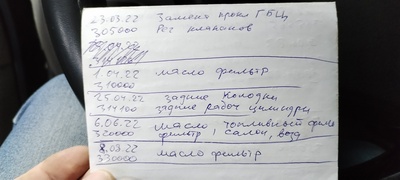 23.03.22 Замена прокл ГБЦ
305000 Рег клапанов
1.04.22 масло фильтр
310000
25.04.22 задние колодки
314100 задние рабоч цилиндры
6.06.22 масло топливный фильт
320000 фильтр салон, возд
8.08.22 масло фильтр
330000